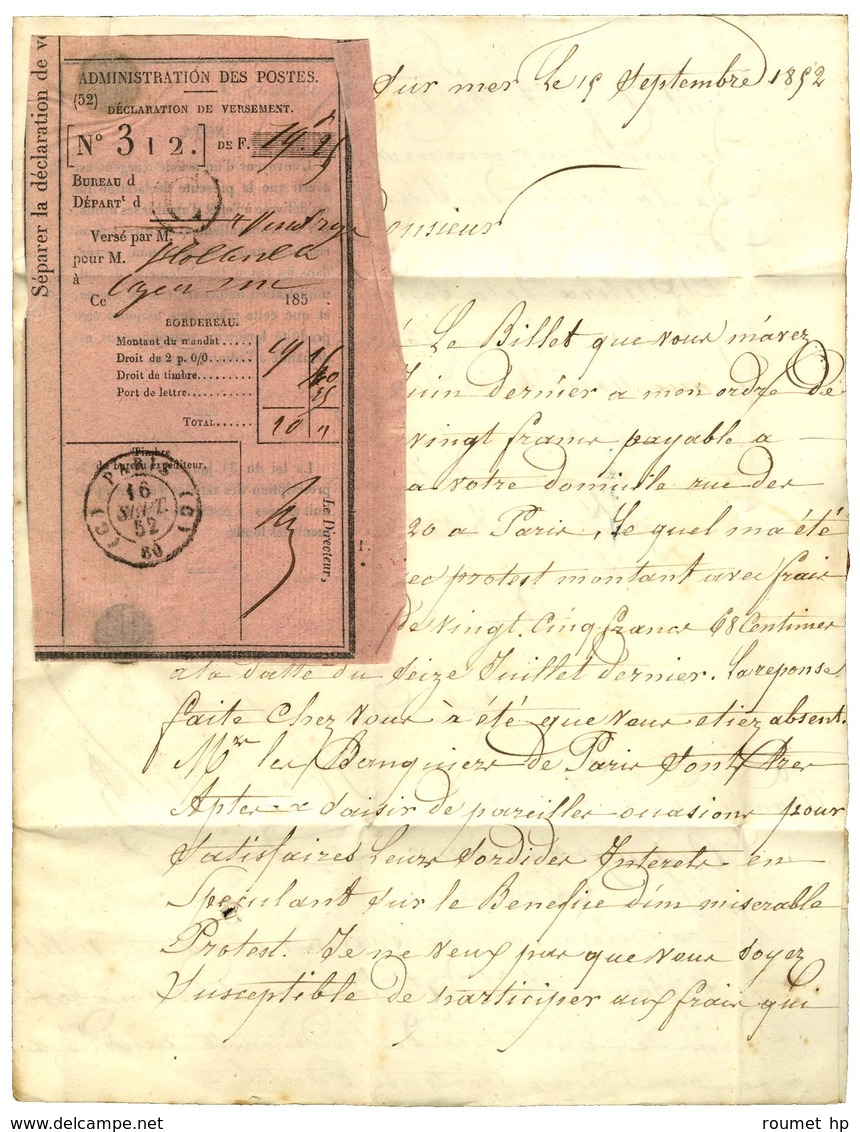 Séparer la déclaration de ve
ADMINISTRATION DES POSTES.
(52)
DÉCLARATION DE VERSEMENT.
[N° 312.] DE F. 19f 25
BUREAU d
DÉPARTt d
Versé par M.
pour M.
à
Ce 185
BORDEREAU.
Montant du mandat..... 19
Droit de 2 p. 0/0.......... 40
Droit de timbre.......... 35
Port de lettre..............
TOTAL...... 20 "
Timbre
du bureau expéditeur.
PARIS
(C) (C)
16
SEPT.
52
60
Le Directeur,
sur mer Le 15 Septembre 1852
Monsieur
Le Billet que vous m'avez
Juin dernier a mon ordre de
vingt francs payable a
a votre domicile rue des
20 a Paris, Le quel ma été
protest montant avec frais
de vingt. Cinq francs 68 Centimes
a la datte du seize Juillet dernier. La reponse
faite chez vous à été que vous etiez absent.
Mrs les Banquiers de Paris sont
Aptes a saisir de pareilles ouasions pour
satisfaires Leurs sordides Interets en
Speculant sur le Benefice d'un miserable
Protest. Je ne veux pas que vous soyez
susceptible de participer aux frais qui
roumet hp